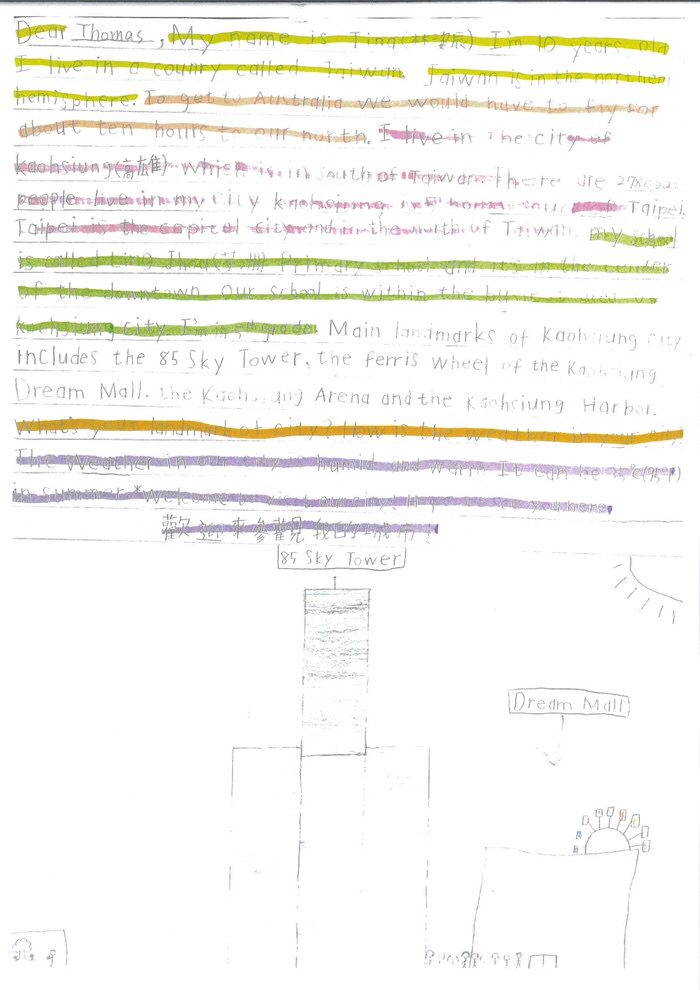 Dear Thomas, My name is Tina(林 辰) I'm 10 years old
I live in a counry called Taiwan. Taiwan is in the northen
hemisphere. To get to Australia we would have to fly for
about ten hours to our north. I live in the city of
kaohsiung(高雄) which is in south of Taiwan. There are
people live in my city kaohsiung is hours Taipei.
Taipei is the capital city and in the north of Taiwan. My school
is called Ling Jhou( ) Primary school and it's in the center
of the downtown. Our school is within the
kaohsiung city. I'm in grade. Main landmarks of Kaohsiung city
includes the 85 Sky Tower, the ferris wheel of the Kaohsiung
Dream Mall. the Kaohsiung Arena and the Kaohsiung Harbor.
What's your landmark of city? How is the weather in your city.
The weather in our city is humid and warm. It can be 35°C(95°F)
in summer *Welcome to visit my city!
歡迎來參觀我的城市!
85 Sky Tower
Dream Mall